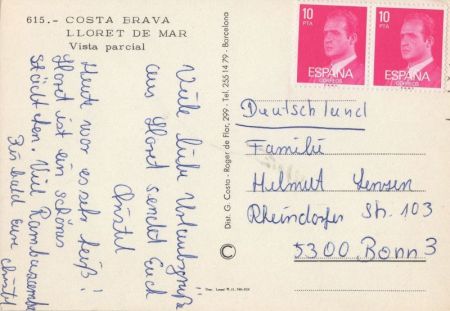 615.- COSTA BRAVA
LLORET DE MAR
Vista parcial
Viele liebe Urlaubsgrüße
aus Lloret sendet Euch
Christel
Heute war es sehr heiß!
Lloret ist ein schönes
Städtchen. Viel
Bis bald Eure Christel
Dist. G. Costa - Roger de Flor, 299 - Tel. 255 14 79 - Barcelona
©
10
PTA
ESPAÑA
CORREOS
10
PTA
ESPAÑA
CORREOS
Deutschland
Familie
Helmut Jensen
Rheindorfer Str. 103
5300 Bonn 3